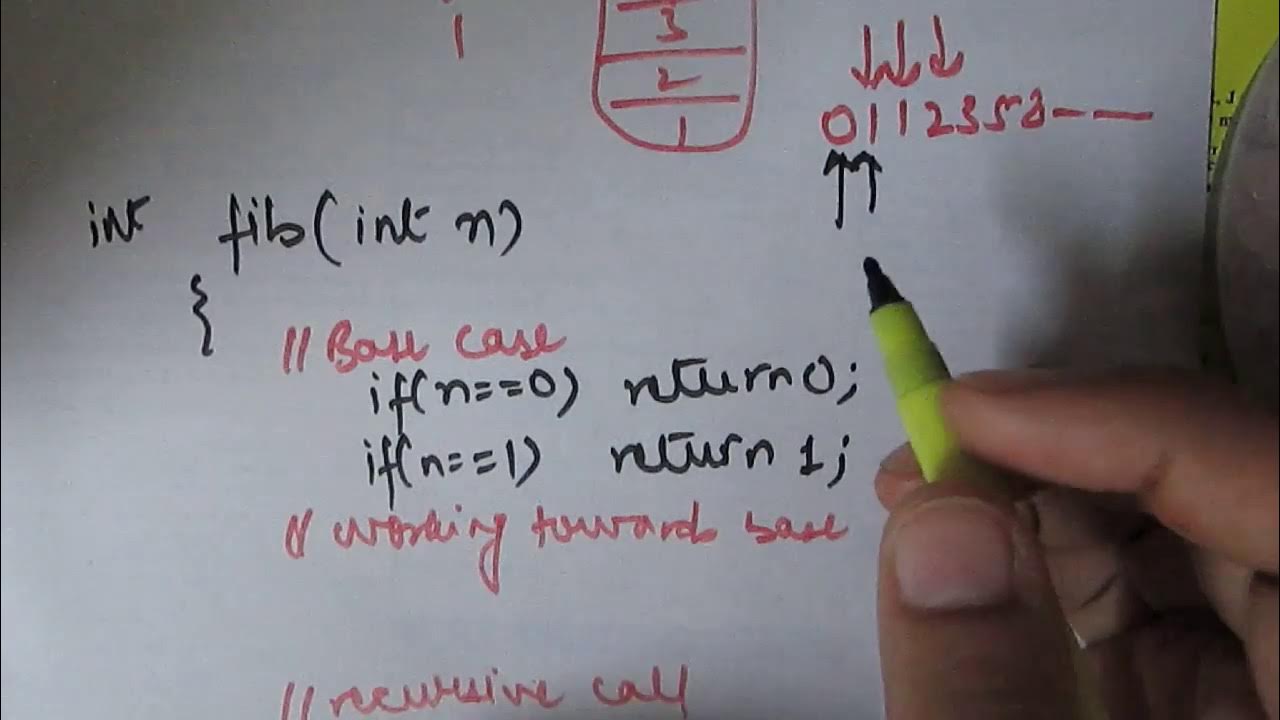 1
3
2
1
0 1 1 2 3 5 8 - - -
int fib(int n)
{
// Base case
if(n==0) return 0;
if(n==1) return 1;
// working towards base
// recursive call